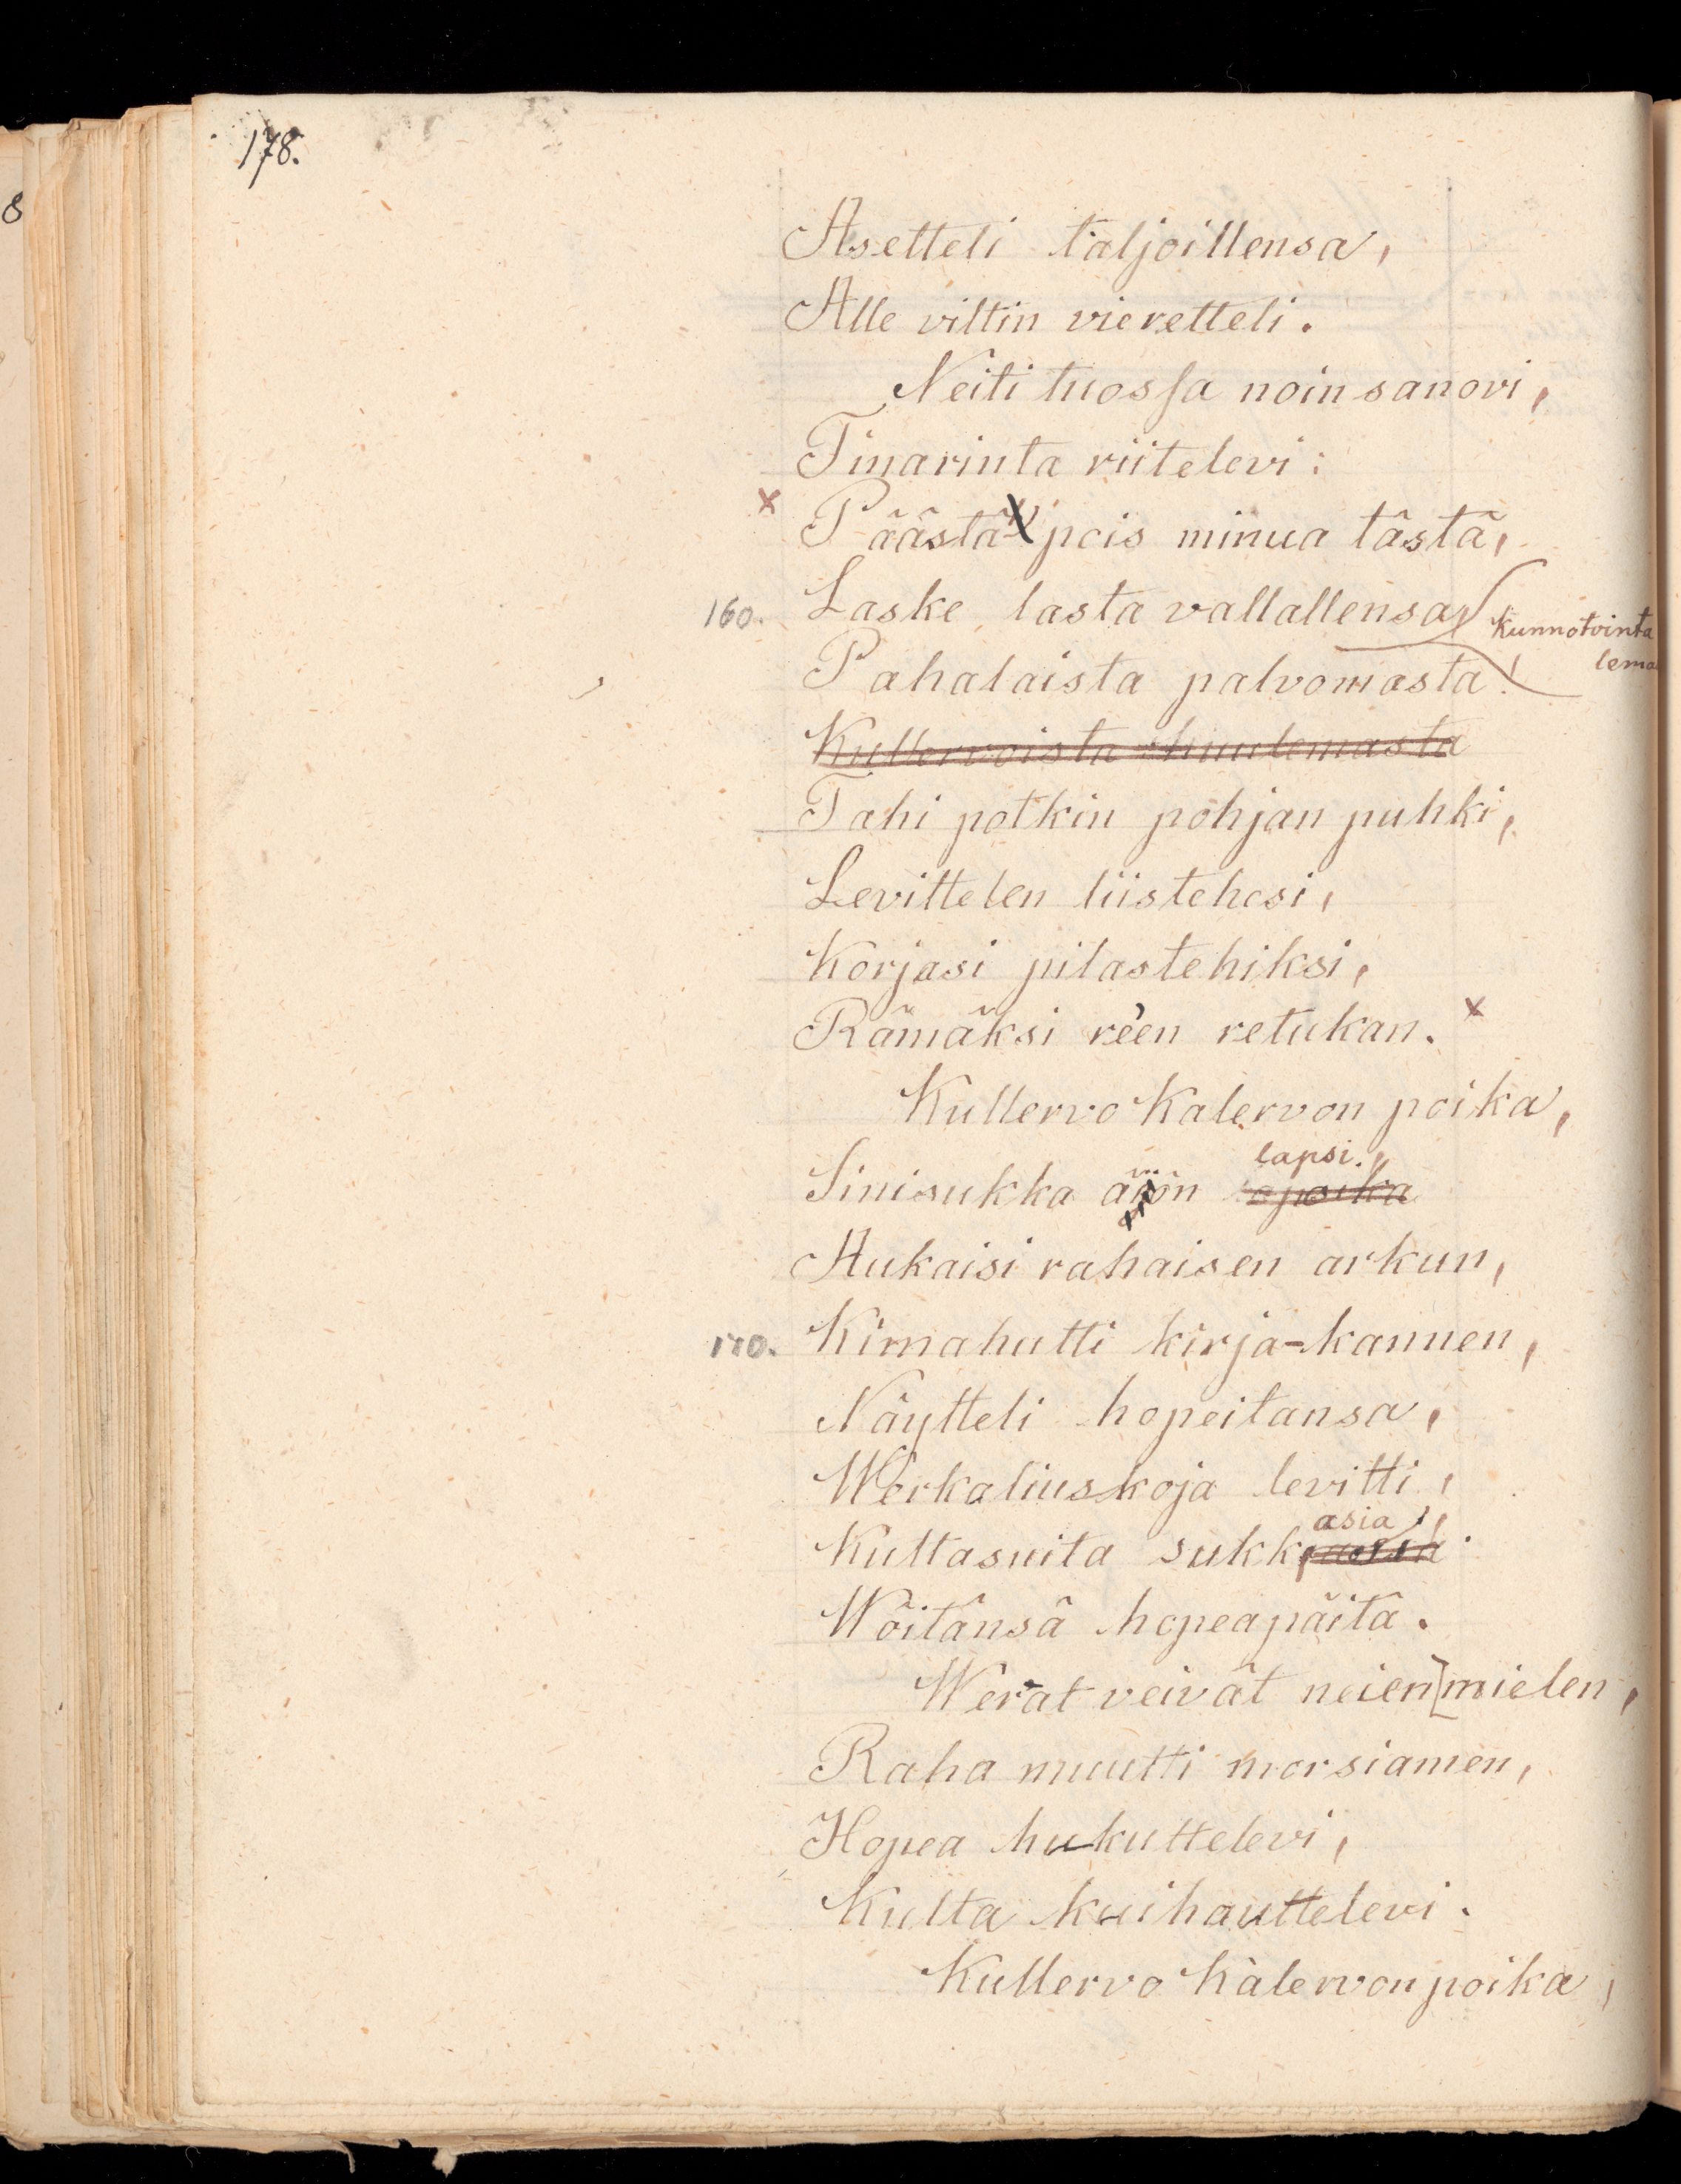 178.
8
Asetteli taljoillensa,
Alle viltin vieretteli.
Neiti tuossa noin sanovi,
Tinarinta riitelevi:
x Päästä pois minua tästä,
160. Laske lasta vallallensa
kunnotointa
Pahalaista palvomasta!
lema
Kullervoista kuulemasta
Tahi potkin pohjan puhki,
Levittelen liistehesi,
Korjasi pilastehiksi,
Rämäksi re'en retukan. x
Kullervo Kalervon poika,
lapsi.,
Sinisukka äiön
Aukaisi rahaisen arkun,
170. Kimahutti kirja-kannen,
Näytteli hopeitansa,
Werkaliuskoja levitti,
asia,
Kultasuita sukk
Wöitänsä hopeapäitä.
Werat veivät neien[mielen,
Raha muutti morsiamen,
Hopea hukuttelevi,
Kulta kuihauttelevi.
Kullervo Kalervon poika,